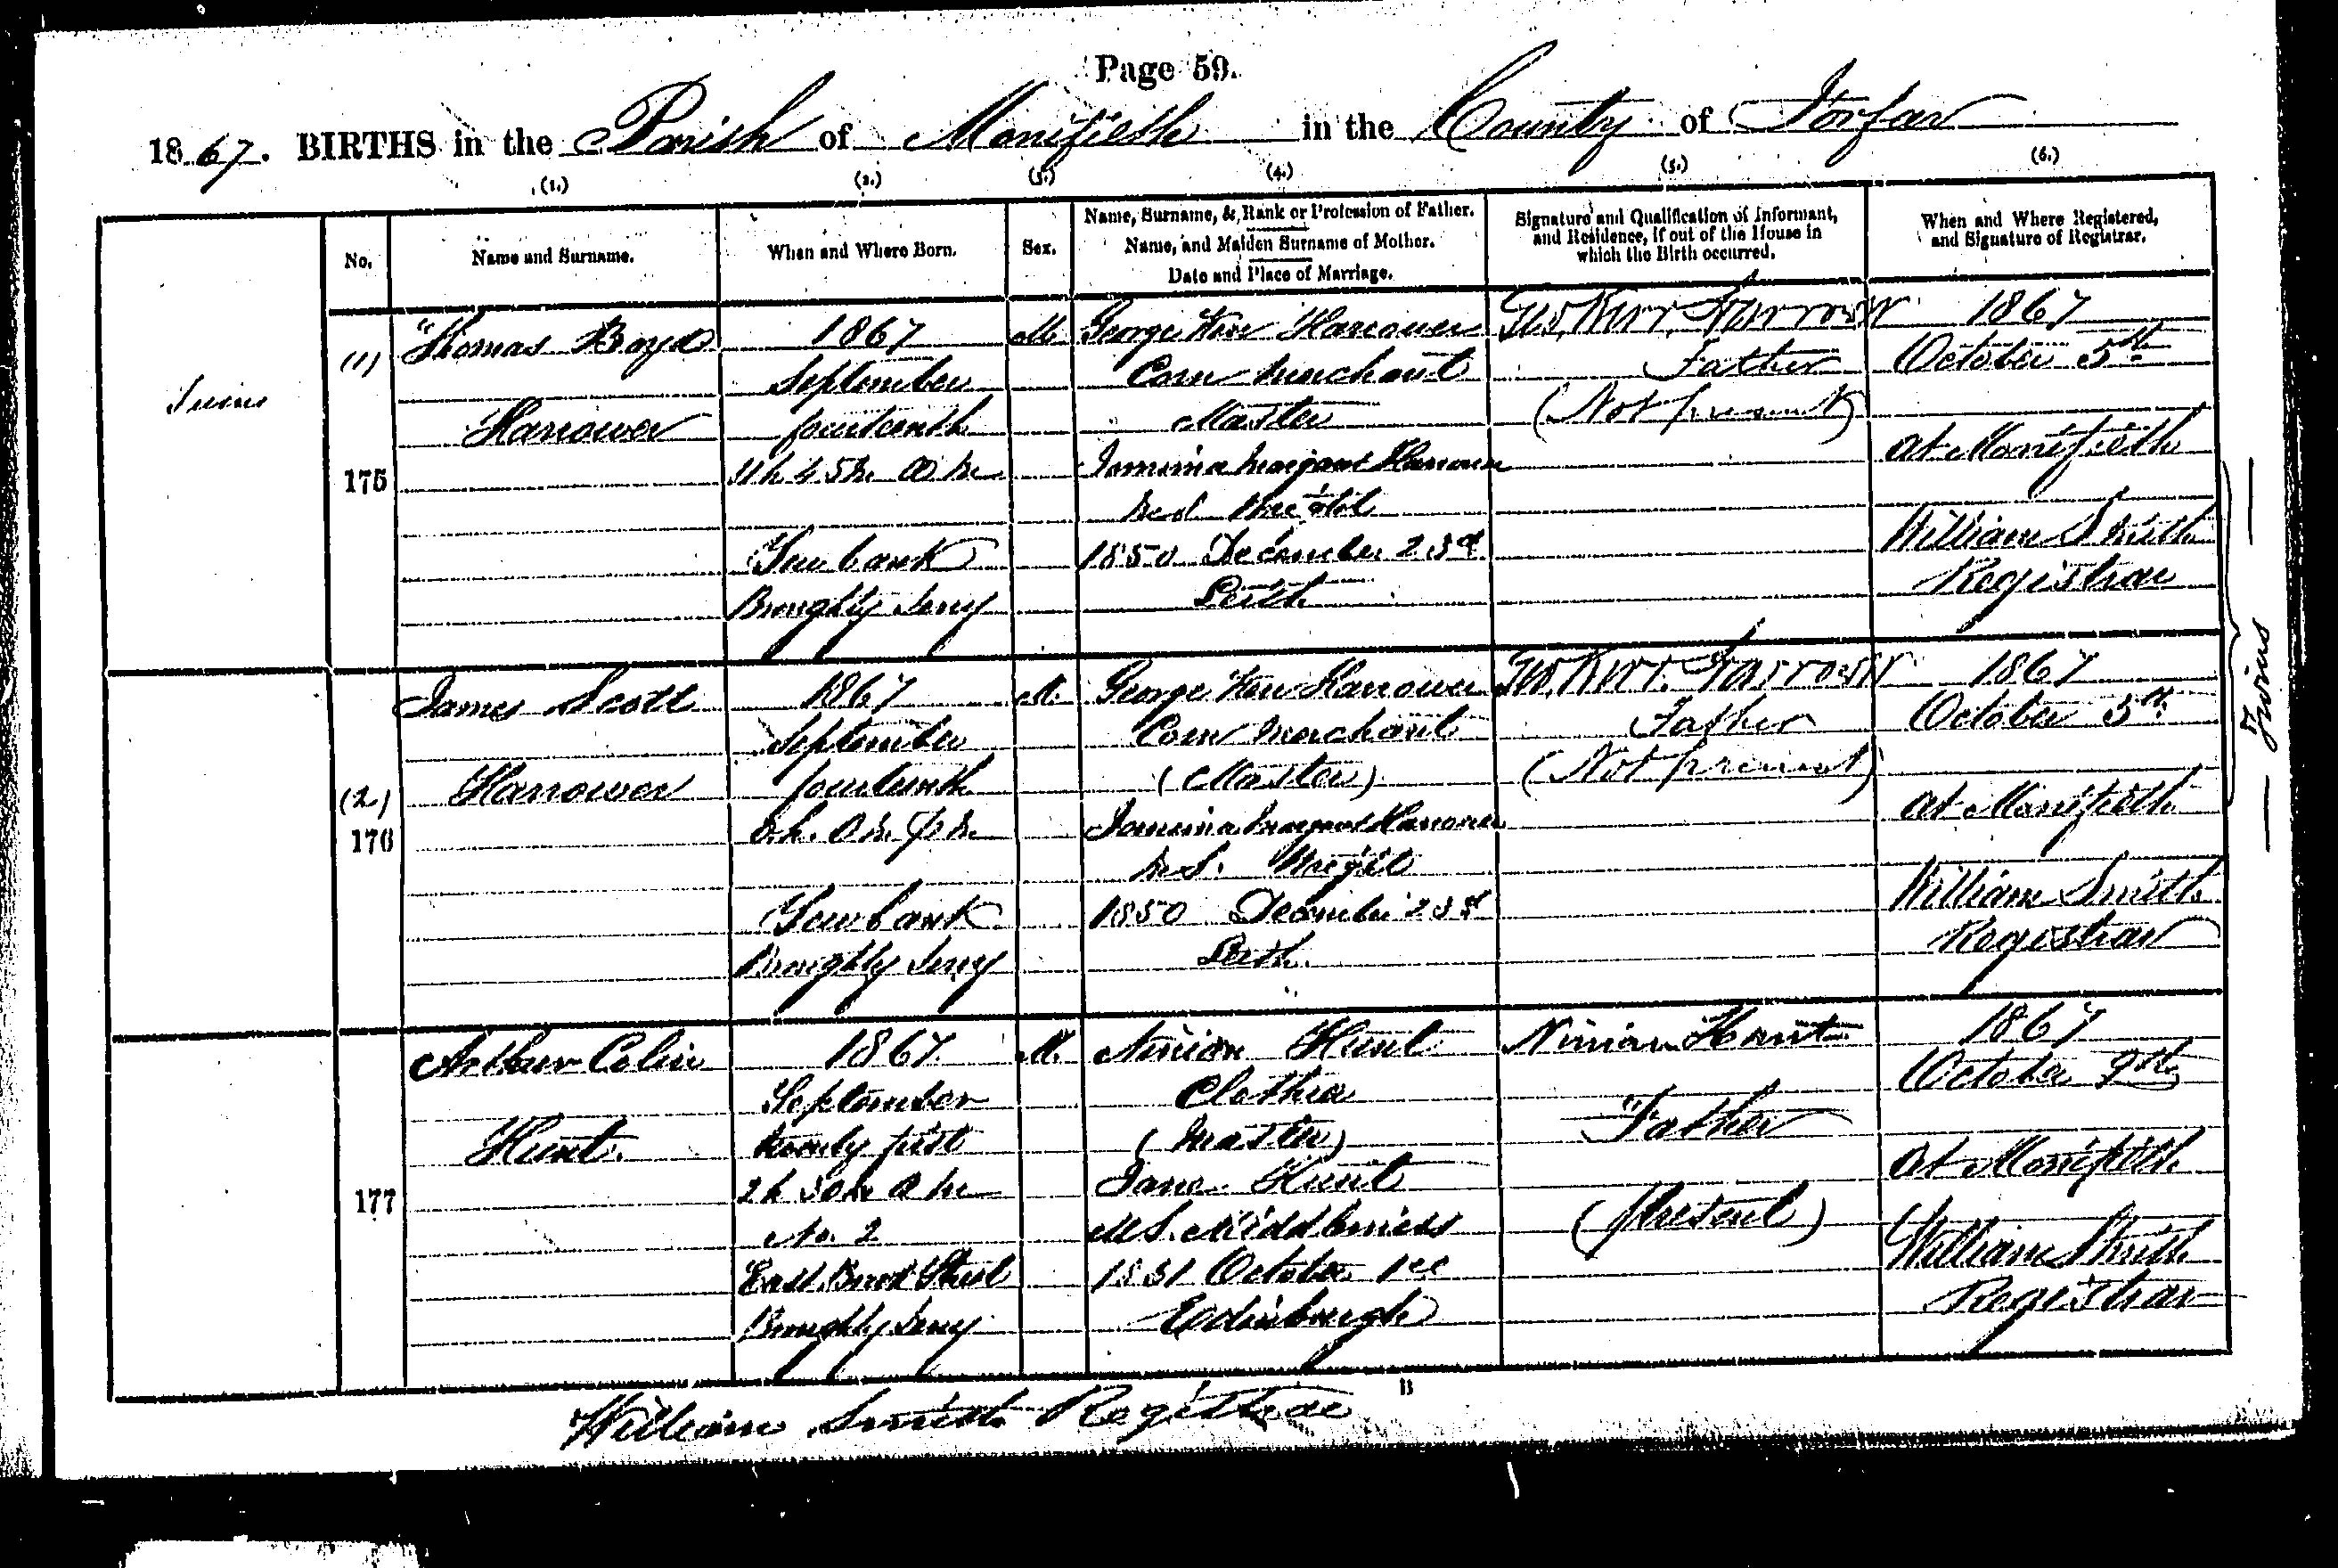 Page 59.
1867. BIRTHS in the Parish of Monifieth in the County of Forfar
(1.) (2.) (3.) (4.) (5.) (6.)
No.
Name and Surname.
When and Where Born.
Sex.
Name, Surname, & Rank or Profession of Father.
Name, and Maiden Surname of Mother.
Date and Place of Marriage.
Signature and Qualification of Informant,
and Residence, if out of the House in
which the Birth occurred.
When and Where Registered,
and Signature of Registrar.
Twins
(1)
175
Thomas Boyd
Harrower
1867
September
fourteenth
11h 45m A M
Gowbank
Broughty Ferry
M.
George Kerr Harrower
Corn Merchant
Master
Jemima Margaret Harrower
M.S. Wright
1850 December 23d
Perth
Geo. Kerr Harrower
Father
(Not present)
1867
October 5th
At Monifieth
William Smith
Registrar
(2)
176
James Scott
Harrower
1867
September
fourteenth
0h. 0m. P M
Gowbank
Broughty Ferry
M.
George Kerr Harrower
Corn Merchant
(Master)
Jemima Margaret Harrower
M.S. Wright
1850 December 23d
Perth.
Geo. Kerr. Harrower
Father
(Not present)
1867
October 5th
At Monifieth
William Smith
Registrar
— Twins —
177
Arthur Colin
Hunt.
1867.
September
twenty first
2h 30m A M
No. 2
East
Street
Broughty Ferry
M.
Ninian Hunt
Clothier
(Master)
Jane Hunt
M.S. Middlemiss
October 1st
Edinburgh
Ninian Hunt
Father
(Present)
1867
October 9th
At Monifieth
William Smith
Registrar
B
William Smith Registrar